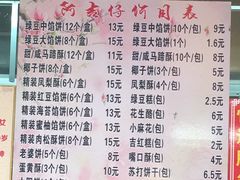 阿麦仔价目表
绿豆中馅饼(12个/盒) 13元 绿豆中馅饼(10个/包) 9元
绿豆大馅饼(8个/盒) 13元 绿豆大馅饼(1个) 1.6元
甜/咸马蹄酥(12个/盒) 11元 甜/咸马蹄酥(10个/包) 8元
椰子饼(8个/盒) 15元 椰子饼(3个/包) 5元
精装凤梨酥(6个/盒) 15元 凤梨酥(3个/包) 6元
精装红豆馅饼(6个/盒) 13元 绿豆糕(/包) 2元
精装海苔馅饼(6个/盒) 15元 花生酷(/包) 6元
精装蜜柚馅饼(6个/盒) 15元 小麻花(/包) 5元
精装肉松酥饼(6个/盒) 15元 吉红糕(/包) 2元
老婆饼(5个/包) 5元 嘴口酥(/包) 4元
蛋黄酥(3个/包) 6元 苏打饼干(/包) 5元